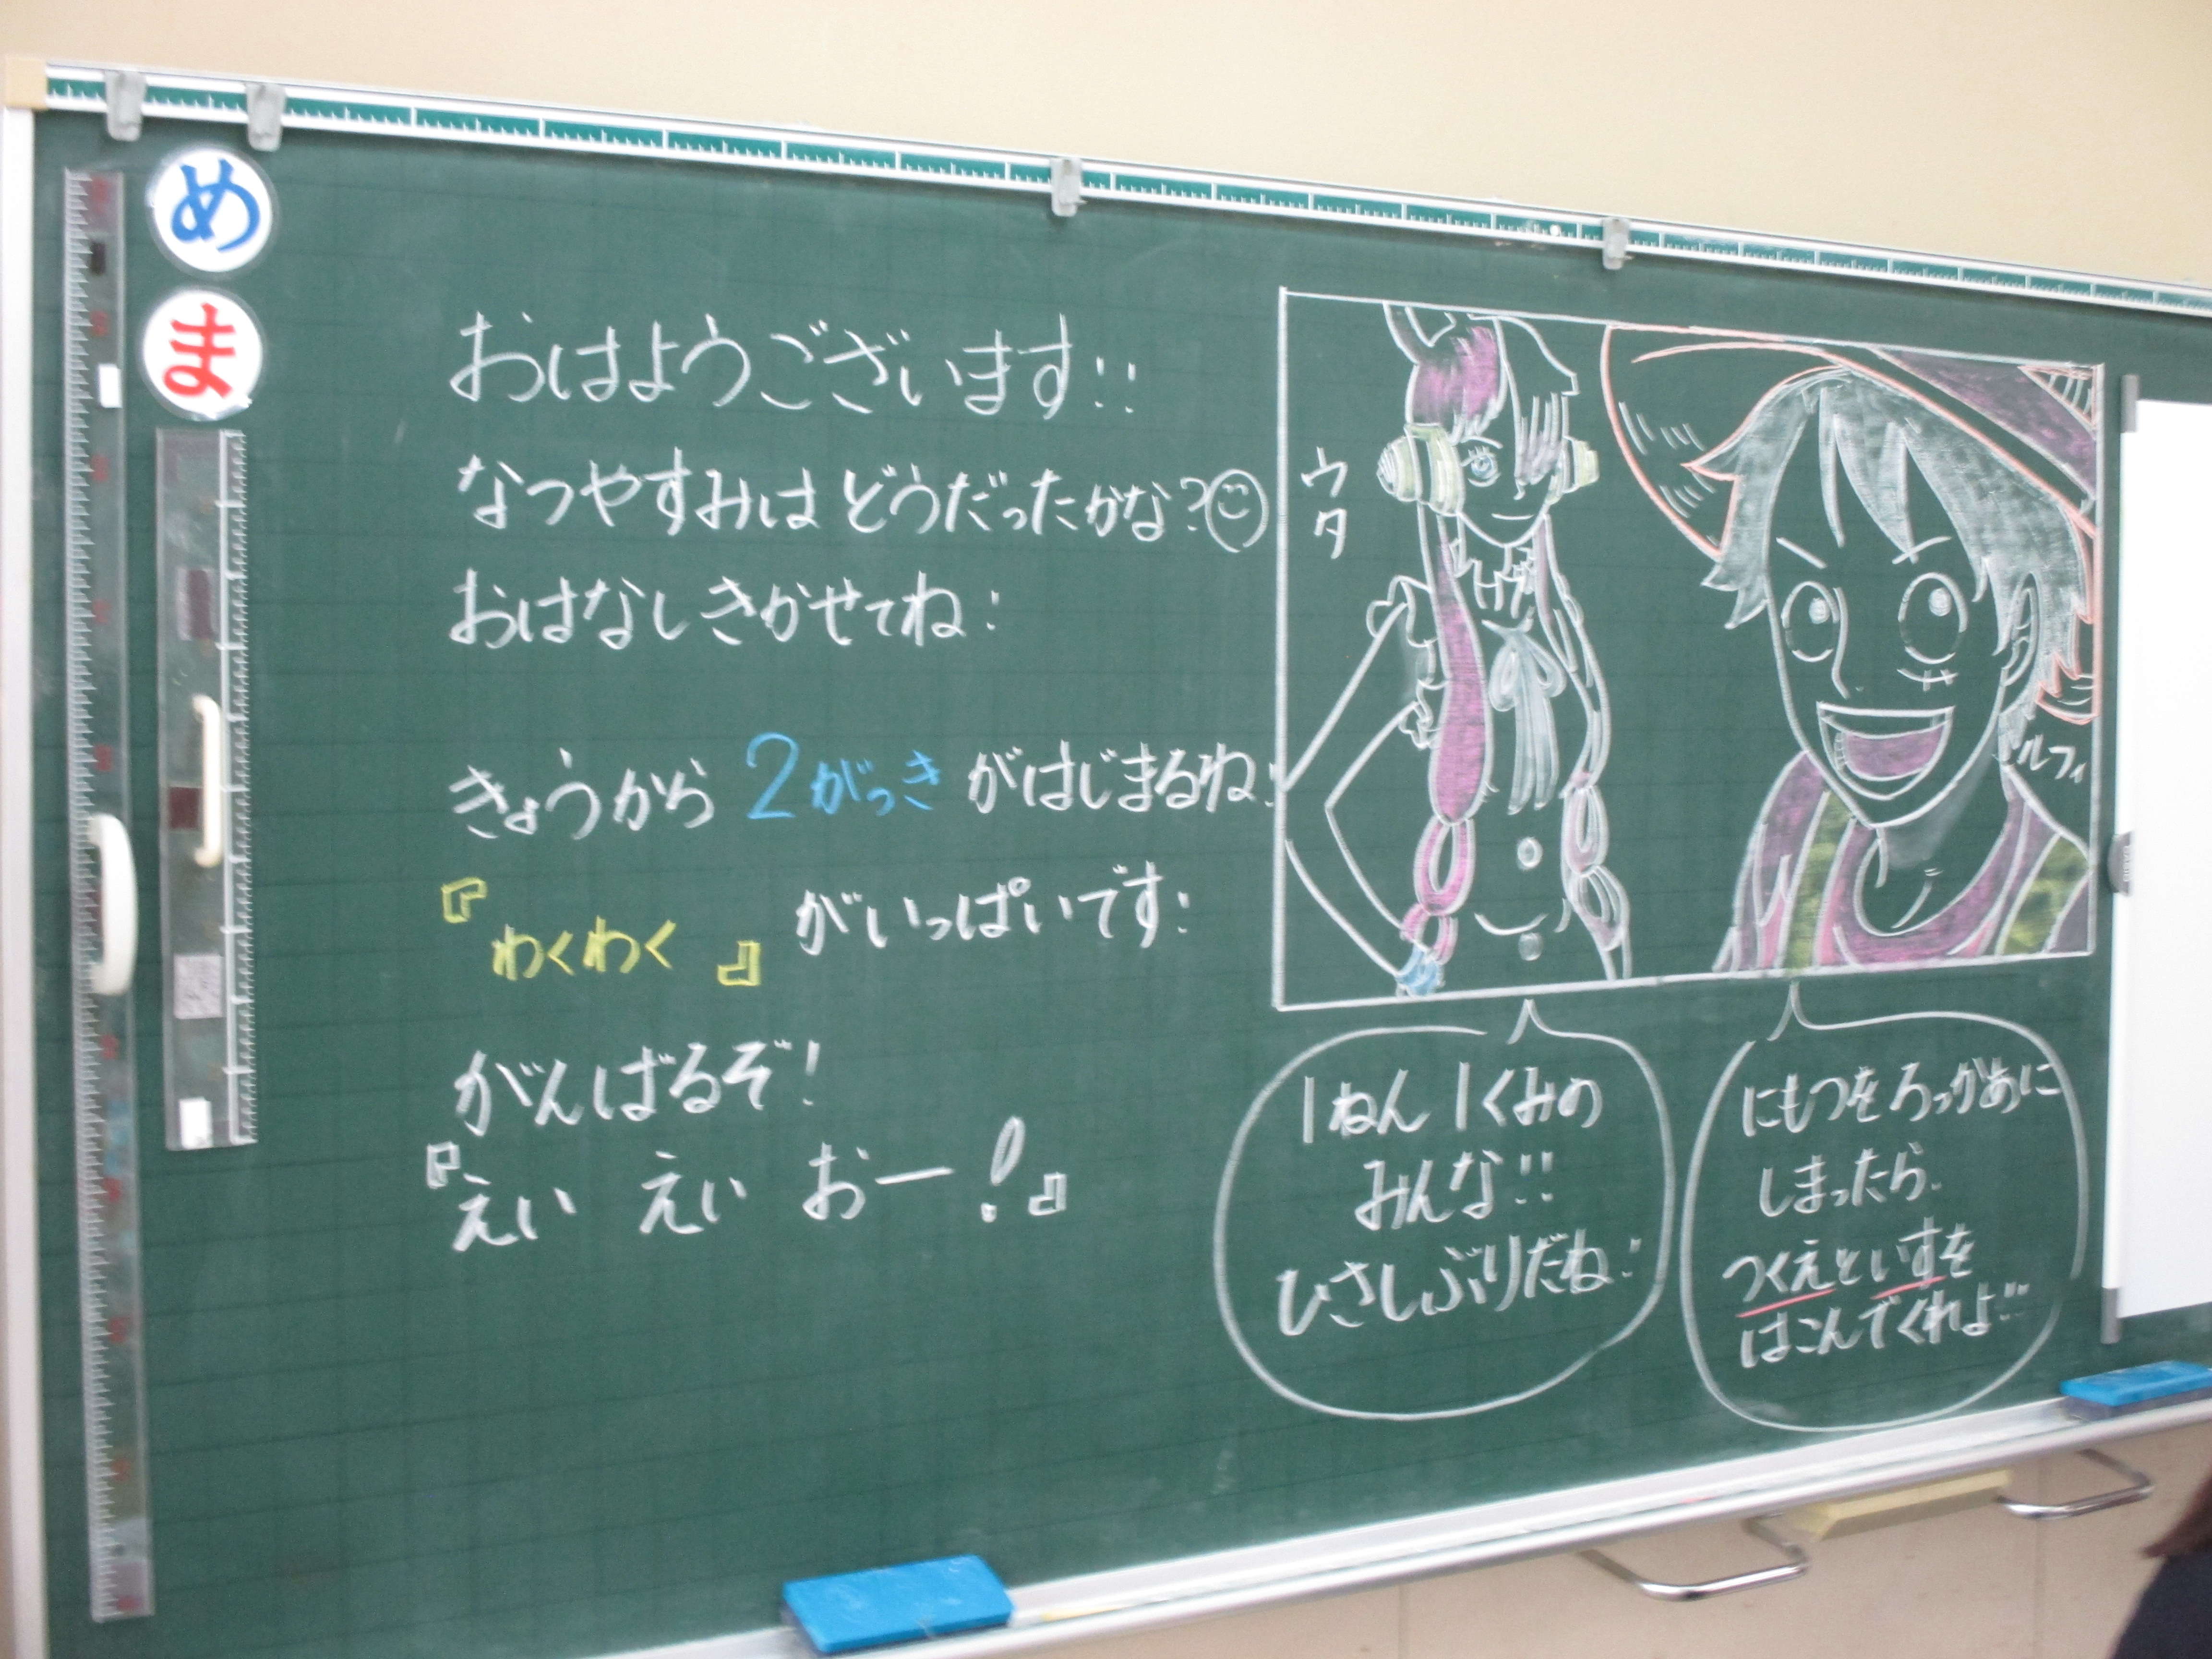 め
ま
おはようございます!!
なつやすみはどうだったかな?
おはなしきかせてね!
きょうから2がっきがはじまるね!
『わくわく』がいっぱいです!
がんばるぞ!
『えい えい おー!』
ウタ
ルフィ
1ねん1くみの
みんな!!
ひさしぶりだね!
にもつをろっかあに
しまったら、
つくえといすを
はこんでくれよ!!